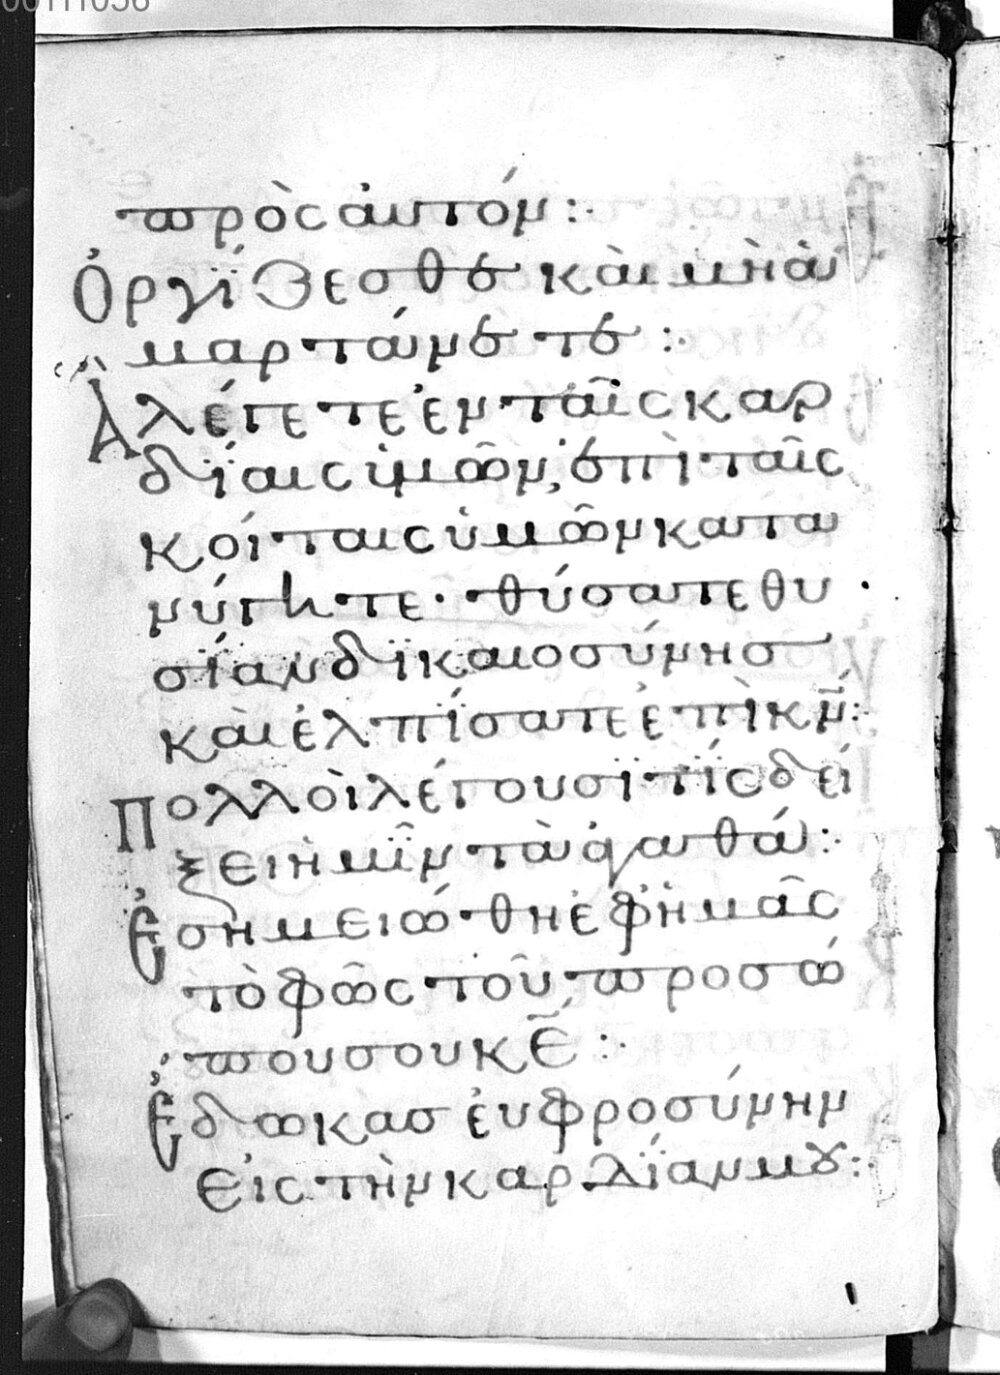 00111056
πρὸς αὐτόν :·
Ὀργίζεσθε καὶ μὴ ἁ
μαρτάνετε :·
Ἃ λέγετε ἐν ταῖς καρ
δίαις ὑμῶν, ἐπὶ ταῖς
κοίταις ὑμῶν κατα
νύγητε · θύσατε θυ
σίαν δικαιοσύνησ
καὶ ἐλπίσατε ἐπὶ κν̄ :
Πολλοὶ λέγουσϊ τίς δεί
ξει ἡμῖν τὰ ἀγαθά :·
Ἐσημειώθη ἐφ ἡμᾶς
τὸ φῶς τοῦ προσώ
που σου κε̄ :·
Ἔδωκασ ἐυφροσύνην
εἰς τὴν καρδίαν μου :·